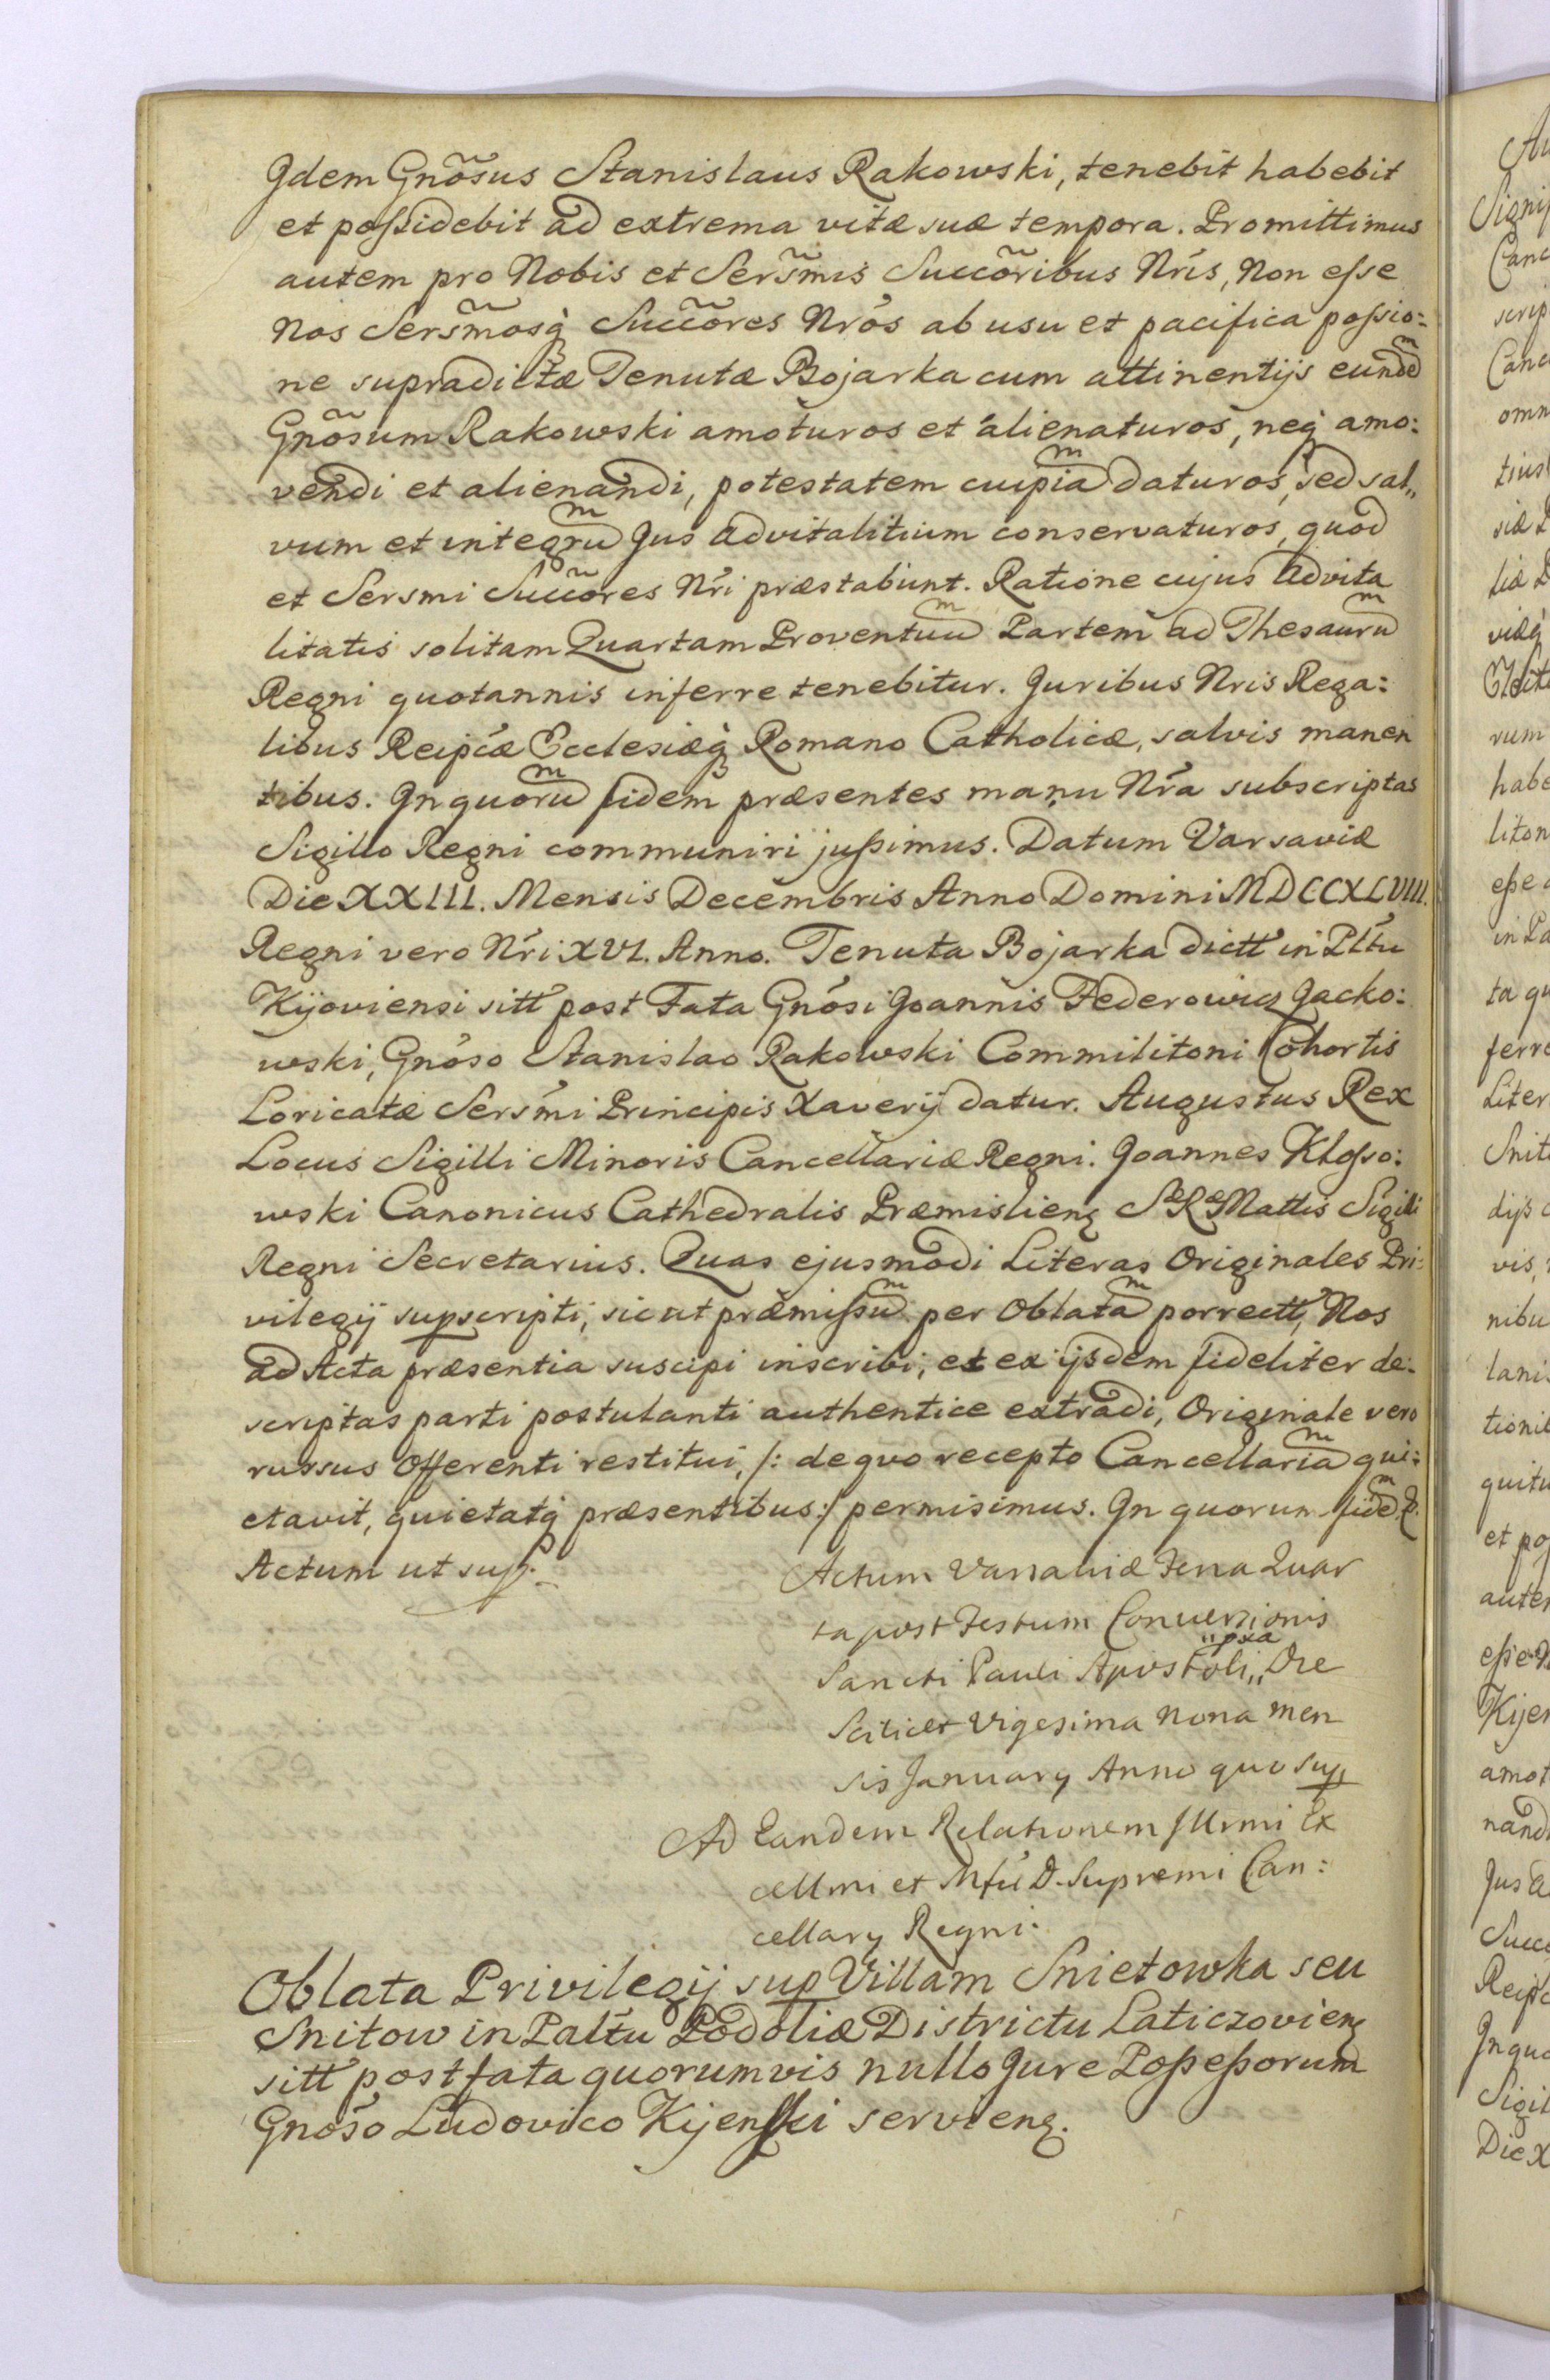 Idem Gnõsus Stanislaus Rakowski, tenebit habebit
et possidebit ad extrema vitæ suæ tempora. Promittimus
autem pro Nobis et Sers̃mis Succõribus Nris, Non esse
Nos Sers̃mosq̀ Succõres Nros ab usu et pacifica possio:
ne supradictæ Tenutæ Bojarka cum attinentijs eundẽ
Gnõsum Rakowski amoturos et alienaturos, neq̀ amo:
vendi et alienandi, potestatem cuipiã daturos, sed sal„
vum et integrũ Jus advitalitium conservaturos, quod
et Sersmi Succõres Nri præstabunt. Ratione cujus advita
litatis solitam Quartam Proventuũ Partem ad Thesaurũ
Regni quotannis inferre tenebitur. Juribus Nris Rega:
libus Reipcæ Ecclesiæq̀ Romano Catholicæ, salvis manen
tibus. In quorũ fidem præsentes manu Nra subscriptas
Sigillo Regni communiri jussimus. Datum Varsaviæ
Die XXIII. Mensis Decembris Anno Domini MDCCXLVIII.
Regni vero Nri XVI. Anno. Tenuta Bojarka dictt in Pltu
Kijoviensi sitt post Fata Gnosi Joannis Federowicz Jacko:
wski, Gnoso Stanislao Rakowski Commilitoni Cohortis
Loricatæ Sersmi Principis Xaverij datur. Augustus Rex
Locus Sigilli Minoris Cancellariæ Regni. Joannes Kłosso:
wski Canonicus Cathedralis Præmislienz Sæ Ræ Mattis Sigilli
Regni Secretarius. Quas ejusmodi Literas Originales Pri:
vilegij supscripti, sicut præmissũ per Oblatã porrectt, Nos
ad Acta præsentia suscipi inscribi, et ex ijsdem fideliter de:
scriptas parti postulanti authentice extradi, Originale vero
rursus Offerenti restitui, /: de quo recepto Cancellariã qui:
etavit, quietatq̀ præsentibus :/ permisimus. In quorum fidẽ &.
Actum ut sup.
Actum Varsaviæ Feria Quar
ta post Festum Conversionis
Sancti Pauli Apostoli„ Die
„pxa
Scilicet Vigesima Nona Men
sis January Anno quo sup
Ad Eandem Relationem Illrmi Ex
cellmi et Mfci D. Supremi Can:
cellary Regni.
Oblata Privilegij sup Villam Snietowka seu
Snitow in Paltu Podoliæ Districtu Laticzovienz
sitt post fata quorumvis nullo Jure Possessorum
Gnoso Ludovico Kijenski servienz.